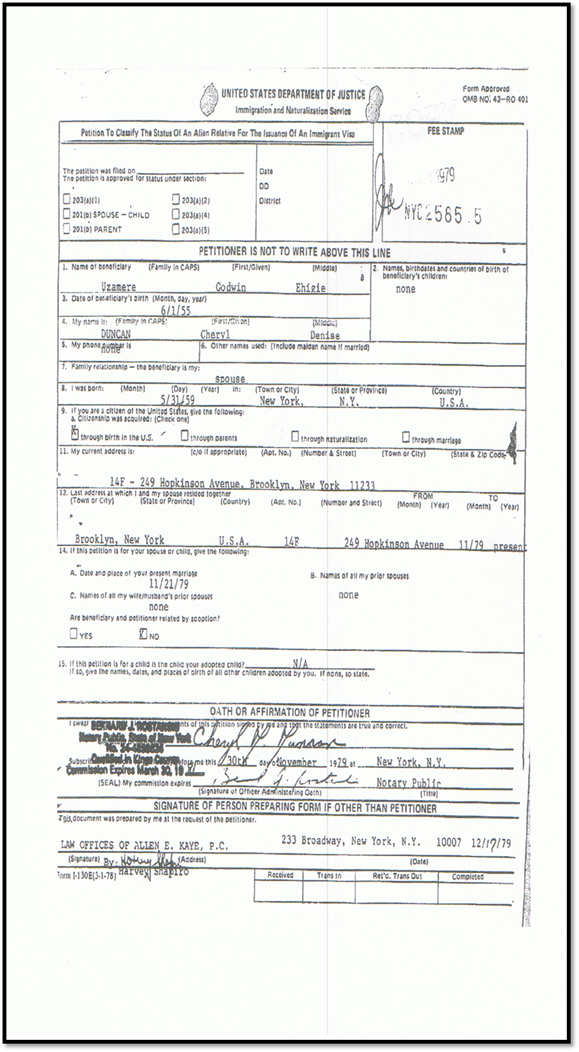 UNITED STATES DEPARTMENT OF JUSTICE
Immigration and Naturalization Service
Form Approved
OMB NO. 43—RO 401
Petition To Classify The Status Of An Alien Relative For The Issuance Of An Immigrant Visa
FEE STAMP
The petition was filed on
The petition is approved for status under section:
203(a)(1) 203(a)(2)
201(b) SPOUSE – CHILD 203(a)(4)
201(b) PARENT 203(a)(5)
Date
DD
District
1979
NYC2585.5
PETITIONER IS NOT TO WRITE ABOVE THIS LINE
1. Name of beneficiary (Family in CAPS) (First/Given) (Middle)
Uzamere Godwin Ehigie
2. Names, birthdates and countries of birth of beneficiary's children:
none
3. Date of beneficiary's birth (Month, day, year)
6/1/55
4. My name is: (Family in CAPS) (First/Given) (Middle)
DUNCAN Cheryl Denise
5. My phone number is
none
6. Other names used: (Include maiden name if married)
7. Family relationship — the beneficiary is my:
spouse
8. I was born: (Month) (Day) (Year) in: (Town or City) (State or Province) (Country)
5/31/59 New York, N.Y. U.S.A.
9. If you are a citizen of the United States, give the following:
a. Citizenship was acquired: (Check one)
X through birth in the U.S. through parents through naturalization through marriage
11. My current address is: (c/o if appropriate) (Apt. No.) (Number & Street) (Town or City) (State & Zip Code)
14F - 249 Hopkinson Avenue, Brooklyn, New York 11233
12. Last address at which I and my spouse resided together FROM TO
(Town or City) (State or Province) (Country) (Apt. No.) (Number and Street) (Month) (Year) (Month) (Year)
Brooklyn, New York U.S.A. 14F 249 Hopkinson Avenue 11/79 present
14. If this petition is for your spouse or child, give the following:
A. Date and place of your present marriage
11/21/79
B. Names of all my prior spouses
none
C. Names of all my wife/husband's prior spouses
none
Are beneficiary and petitioner related by adoption?
YES X NO
15. If this petition is for a child is the child your adopted child? N/A
If so, give the names, dates, and places of birth of all other children adopted by you. If none, so state.
OATH OR AFFIRMATION OF PETITIONER
I swear of this petition signed by me and that the statements are true and correct.
BERNARD J. ROSTANSKI
Notary Public, State of New York
Qualified in Kings County
Commission Expires March 30, 19
30th day of November 1979 at New York, N.Y.
(SEAL) My commission expires Notary Public
(Signature of Officer Administering Oath) (Title)
SIGNATURE OF PERSON PREPARING FORM IF OTHER THAN PETITIONER
This document was prepared by me at the request of the petitioner.
LAW OFFICES OF ALLEN E. KAYE, P.C. 233 Broadway, New York, N.Y. 10007 12/17/79
(Signature) By: (Address) (Date)
Harvey Shapiro
Form I-130E(3-1-78)
Received Trans In Ret'd. Trans Out Completed